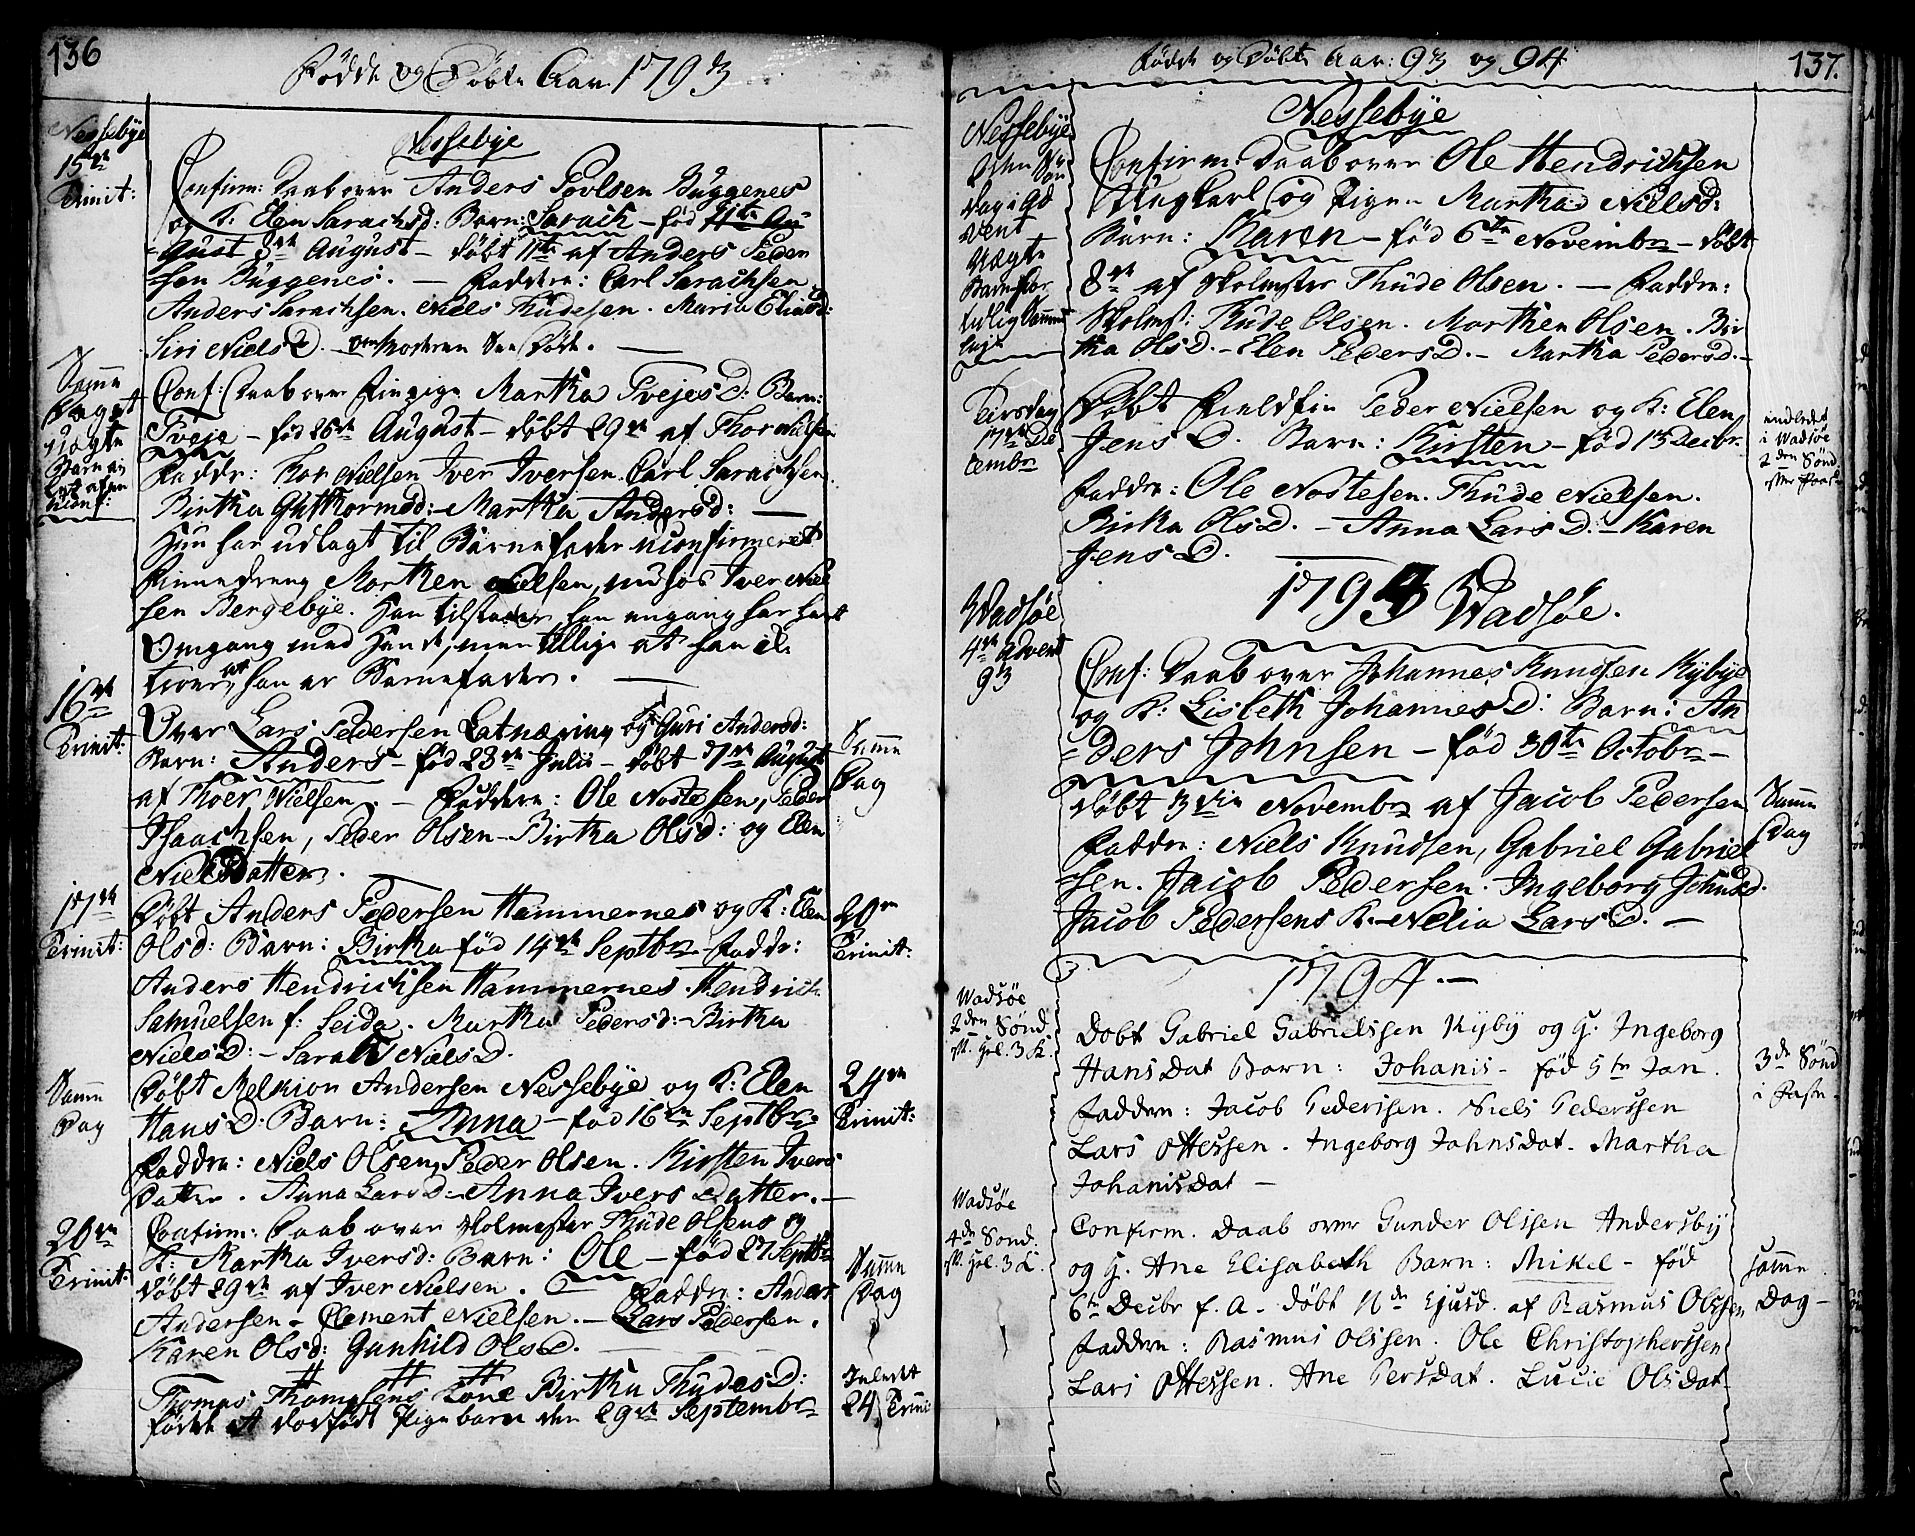 136
Födde og Döbte Aar 1793
Nessebye
15de
Trinit:
Nessebye
Confirm: Daab over Anders Povlsen Buggenes
og K. Elen Sarachsd: Barn: Sarach - fød 11te Au-
gust 8de August - døbt 11te af Anders Peder
sen Buggenes. - Faddere: Carl Sarachsen
Anders Sarachsen. Niels Thudesen. Maria Eliasd:
Siri NielsD. - Moderen Døde. -
Samme
Dag
Uægte
Barn
Conf: Daab over Finpige Martha TvejesD: Barn:
Tveje - fød 26de August - døbt 29de af Thor Nielsen
Faddr: Thor Nielsen Iver Iversen. Carl Sarachsen
Birtha Guthormsd: - Martha Andersd: -
Hun har udlagt til Barnefader uconfirmeret
Finnedreng Morthen Nielsen, nu hos Iver Niel
sen Bergebye. Han tilstaaer han engang har havt
Omgang med Hende, men tillige at han
at han er Barnefader. -
16de
Trinit:
Over Lars Pedersen Latnæring og Guri Andersd:
Barn: Anders - fød 23de Julii - døbt 7de August
af Thoer Nielsen. - Faddere: Ole Nostesen, Peder
Isaachsen, Peder Olsen - Birtha Olsd: og Elen
NielsDatter.
Samme
Dag
17de
Trinit:
Døbt Anders Pedersen Hammernes og K: Elen
Olsd: Barn: Birtha fød 14de Septbr - Faddr:
Anders Hendrichsen Hammernes. Hendrich
Samuelsen f: Seida. Martha Pedersd: - Birtha
NielsD: - Sara NielsD.
20de
Trinit:
Samme
Dag
Døbt Melkior Andersen Nessebye og K: Elen
HansD: Barn: Anna - fød 16de Septbr
Faddre: Niels Olsen, Peder Olsen. Kirsten Ivers
Datter. Anna LarsD: - Anna Ivers Datter. -
24de
Trinit:
20de
Trinit:
Confirm: Daab over Skolmester Thude Olsens og
K: Martha Iversd: Barn: Ole - fød 27 Septbr
døbt 29de af Iver Nielsen. - Faddre: Anders
Andersen - Clement Nielsen. - Lars Pedersen.
Karen Olsd: Gunhild OlsD.
Samme
Dag
Thomas Thomesens Kone Birtha ThudesD:
fødde et dødfødt Pigebarn den 29de Septembr
Inledet
24 Trinit
Födde og Döbte Aar: 93 og 94
137.
Nessebye
Søn
dag i Ad
vent
Uægte
Barn for
tidlig Samm
leje
Nessebye
Confirm. Daab over Ole Hendrichsen
Ungkarl og Pigen Martha Nielsd:
Barn: Karen - fød 6te Novembr - døbt
8de af Skolmester Thude Olsen. - Faddre:
Skolmst: Thude Olsen. Morthen Olsen. Bir
tha OlsD. - Elen PedersD. - Martha Pedersd. -
Tirsdag
17de De
cembr
Døbt Fieldfin Peder Nielsen og K: Elen
JensD. Barn: Kirsten - fød 13 Decbr.
Faddre: Ole Nostesen. Thude Nielsen.
Birtha OlsD. - Anna LarsD: - Karen
JensD.
indledet
i Wadsöe
2den Sönd
efter Paask
1793 Wadsöe.
Wadsöe
4de Advent
93
Conf: Daab over Johannes Knudsen Kybye
og K: Lisbeth JohannesD: Barn: An
ders Johnsen - fød 30te Octobr -
døbt 3die Novembr af Jacob Pedersen
Faddre: Niels Knudsen, Gabriel Gabriel
sen. Jacob Pedersen. Ingeborg Johnsd.
Jacob Pedersens K. - Nelia LarsD. -
Samme
Dag
1794 -
Wadsöe
2den Sönd.
eft. Hel. 3 K.
Döbt Gabriel Gabrielssen Kyby og H. Ingeborg
HansDat Barn: Johanis - fød 5te Jan.
Faddere: Jacob Pederssen. Niels Pederssen
Lars Ottessen. Ingeborg JohnsDat. Martha
JohanisDat -
3de Sönd
i Faste
Wadsöe
4de Sönd.
eft. Hel. 3 K.
Confirm. Daab over Gunder Olssen Andersby
og H. Ane Elisabeth Barn: Mikel - fød
6te Decbr f. A. døbt 11de Ejusd. af Rasmus Olssen
Faddere: Rasmus Olssen. Ole Christopherssen
Lars Ottessen. Ane PersDat. Lucie OlsDat
samme
Dag -